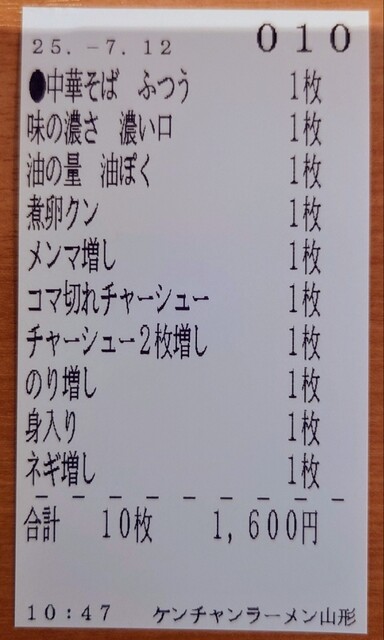 25.-7.12 010
●中華そば ふつう 1枚
味の濃さ 濃い口 1枚
油の量 油ぽく 1枚
煮卵クン 1枚
メンマ増し 1枚
コマ切れチャーシュー 1枚
チャーシュー2枚増し 1枚
のり増し 1枚
身入り 1枚
ネギ増し 1枚
合計 10枚 1,600円
10:47 ケンチャンラーメン山形